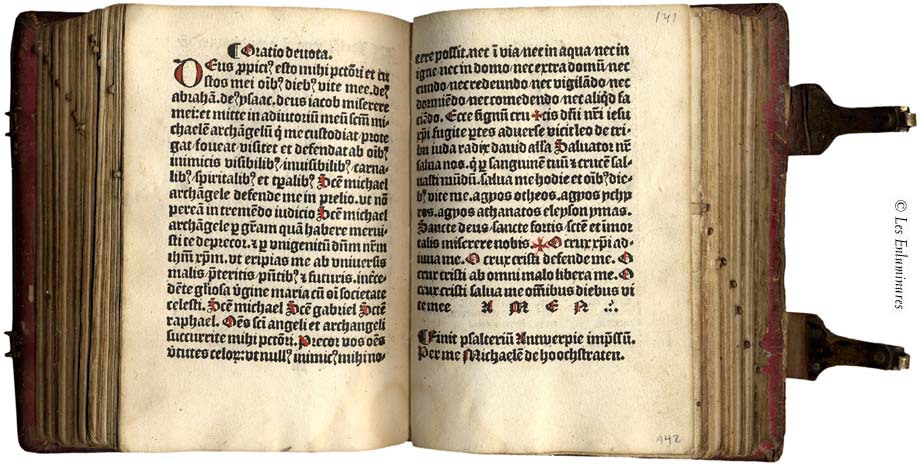 ¶ Oratio deuota.
DEus ꝓpicꝰ esto mihi pctõri et cu
stos mei oĩbꝰ diebꝰ vite mee. deꝰ
abrahã. deꝰ ysaac. deus iacob miserere
mei: et mitte in adiutoriũ meũ scm̃ mi-
chaelẽ archãgelũ q̃ me custodiat prote
gat foueat visitet et defendat ab oĩbꝰ
inimicis visibilibꝰ/ inuisibilibꝰ/ carna-
libꝰ/ spiritalibꝰ/ et tp̃alibꝰ Scẽ michael
archãgele defende me in prelio. vt nõ
pereã in tremẽdo iudicio Scẽ michael
archãgele ꝑ gr̃am quã habere merui-
sti te deprecor. ⁊ ꝑ vnigenitũ dñm nr̃m
ihm̃ xp̃m. vt eripias me ab vniuersis
malis p̃teritis p̃ntibꝰ ⁊ futuris. inťce-
dẽte gl̃iosa v̓gine maria cũ oĩ societate
celesti. Scẽ michael Scẽ gabriel Scẽ
raphael. Oẽs sci angeli et archangeli
succurrite mihi pctõri. Precor vos oẽs
v̓tutes celoꝝ: vt nullꝰ inimicꝰ mihi no-
141
cere possit. nec ĩ via/ nec in aqua/ nec in
igne/ nec in domo/ nec extra domũ/ nec
eundo/ nec redeundo/ nec vigilãdo/ nec
dormiẽdo/ nec comedendo/ nec aliq̃d fa
ciẽdo. Ecce signũ cru ✠ cis dñi nr̃i iesu
xp̃i fugite ꝑtes aduerse vicit leo de tri-
bu iuda radix dauid alla Saluator nr̃
salua nos. q̓ ꝑ sanguinẽ tuũ ⁊ crucẽ sal-
uasti mũdũ. salua me hodie et oĩbꝰ die-
bꝰ vite me. agyos otheos. agyos ychyr
ros. agyos athanatos eleyson ymas.
Sancte deus/ sancte fortis/ scte et imor
talis miserere nobis. ✠ O crux xp̃i ad-
iuua me. O crux cristi defende me. O
crux cristi ab omni malo libera me. O
crux cristi salua me omnibus diebus vi
te mee A M E N
¶ Finit psalteriũ Antwerpie imp̃ssũ.
Per me Michaelẽ de hoochstraten.
142
© Les Enluminures